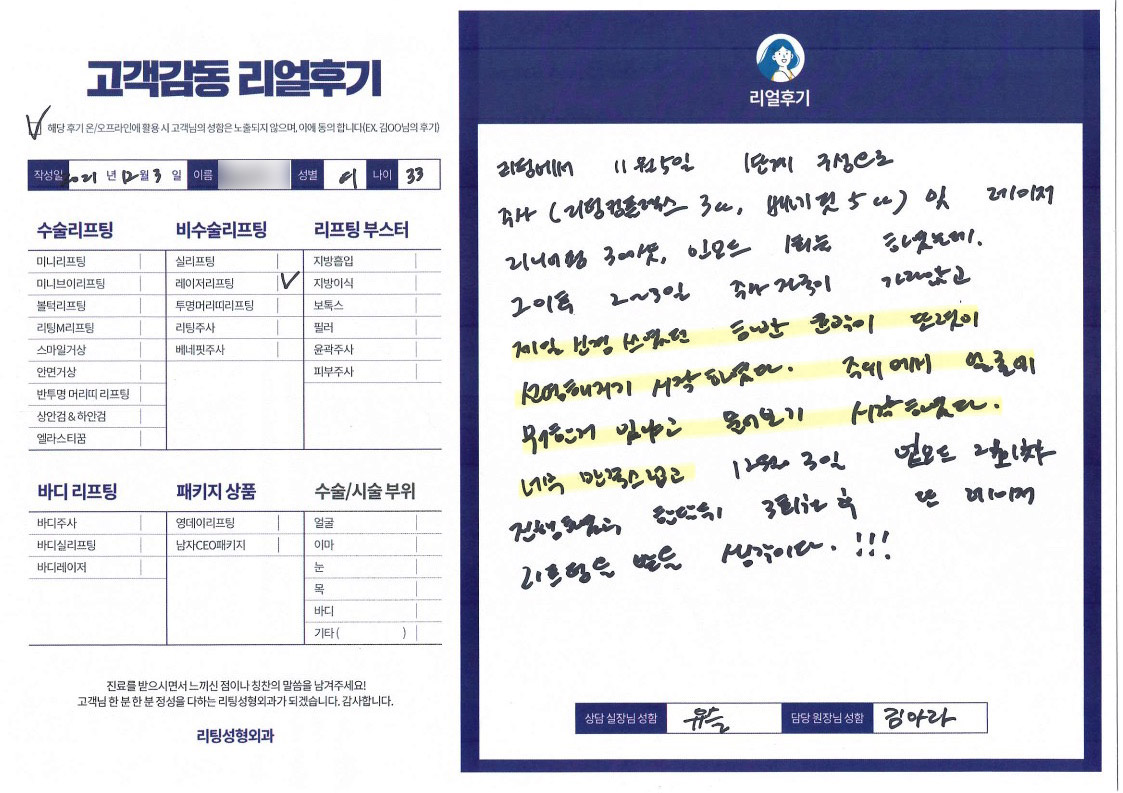 고객감동 리얼후기
해당 후기 온/오프라인에 활용 시 고객님의 성함은 노출되지 않으며, 이에 동의 합니다(EX. 김OO님의 후기)
작성일 2021 년 12 월 3 일 이름 성별 여 나이 33
수술리프팅
미니리프팅
미니브이리프팅
볼턱리프팅
리팅M리프팅
스마일거상
안면거상
반투명 머리띠 리프팅
상안검 & 하안검
엘라스티꿈
비수술리프팅
실리프팅
레이저리프팅
투명머리띠리프팅
리팅주사
베네핏주사
리프팅 부스터
지방흡입
지방이식
보톡스
필러
윤곽주사
피부주사
바디 리프팅
바디주사
바디실리프팅
바디레이저
패키지 상품
영데이리프팅
남자CEO패키지
수술/시술 부위
얼굴
이마
눈
목
바디
기타 ( )
진료를 받으시면서 느끼신 점이나 칭찬의 말씀을 남겨주세요!
고객님 한 분 한 분 정성을 다하는 리팅성형외과가 되겠습니다. 감사합니다.
리팅성형외과
리얼후기
리팅에서 11월 5일 1단계 구성으로
주사 (리팅컴플렉스 3cc, 베네핏 5cc) 및 레이저
리니어펌 300샷, 인모드 1회를 하였는데.
그이후 2~3일 주사 자국이 가라앉고
제일 신경 쓰였던 하관 윤곽이 뚜렷이
선명해지기 시작하였다. 주위에서 얼굴에
뭐한거 있냐고 물어보기 시작하였다.
너무 만족스럽고 12월 3일 인모드 2회차
진행하였고 3회차 후 또 레이저
리프팅을 받을 생각이다. !!!
상담 실장님 성함 유슬 담당 원장님 성함 김아라